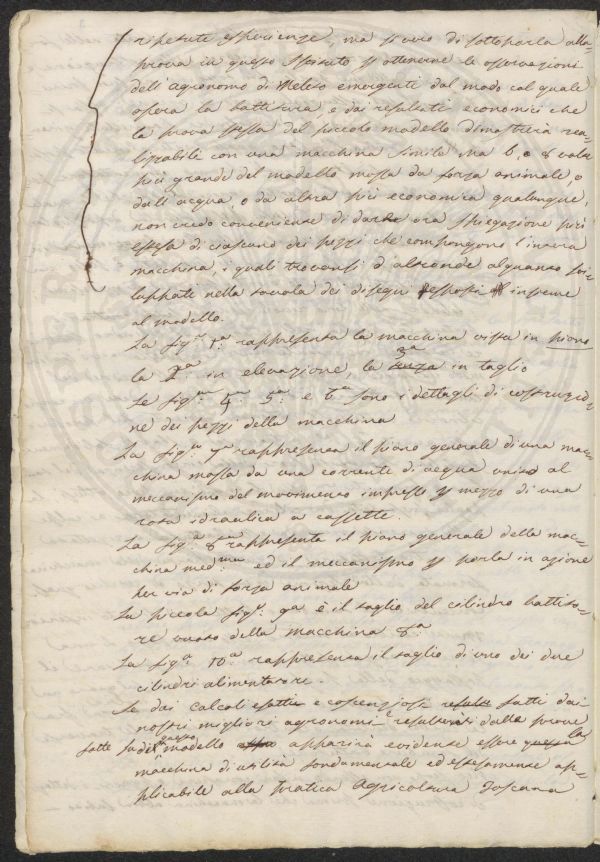 ripetute esperienze, ma si vero di sottoporla alla
prova in questo Istituto p ottenerne le osservazioni
dell' agronomo di Meleto emergenti dal modo col quale
opera la battitura e dai resultati economici che
la prova stessa del piccolo modello dimostrerà rea-
lizzabile con una macchina simile ma 6, o 8 volte
più grande del modello mossa da forza animale, o
dall' acqua, o da altra più economica qualunque,
non credo conveniente di dare ora spiegazione più
estesa di ciascuno dei pezzi che compongono l' intera
macchina, i quali trovansi d' altronde alquanto svi-
luppati nella tavola dei disegni esposti insieme
al modello.
La fig.a 1.a rappresenta la macchina vista in piano
la 2.a in elevazione, la terza 3.a in taglio
Le fig.e 4.a 5.a e 6.a sono i dettagli di costruzio-
ne dei pezzi della macchina
La fig.a 7.a rappresenta il piano generale di una mac-
china mossa da una corrente di acqua unito al
meccanismo del movimento impresso p mezzo di una
rota idraulica a cassette.
La fig.a 8.a rappresenta il piano generale della mac-
china med.ma ed il meccanismo p porla in azione
per via di forza animale
La piccola fig.a 9a è il taglio del cilindro battito-
re vuoto della macchina 8.a
La fig.a 10.a rappresenta il taglio di uno dei due
cilindri alimentatore.
Se dai calcoli esatti e coscenziosi fatti dai
nostri migliori agronomi e resultati dalle prove
fatte sù di questo modello apparirà evidente essere la
macchina di utilità fondamentale ed estesamente ap-
plicabile alla pratica Agricoltura Toscana